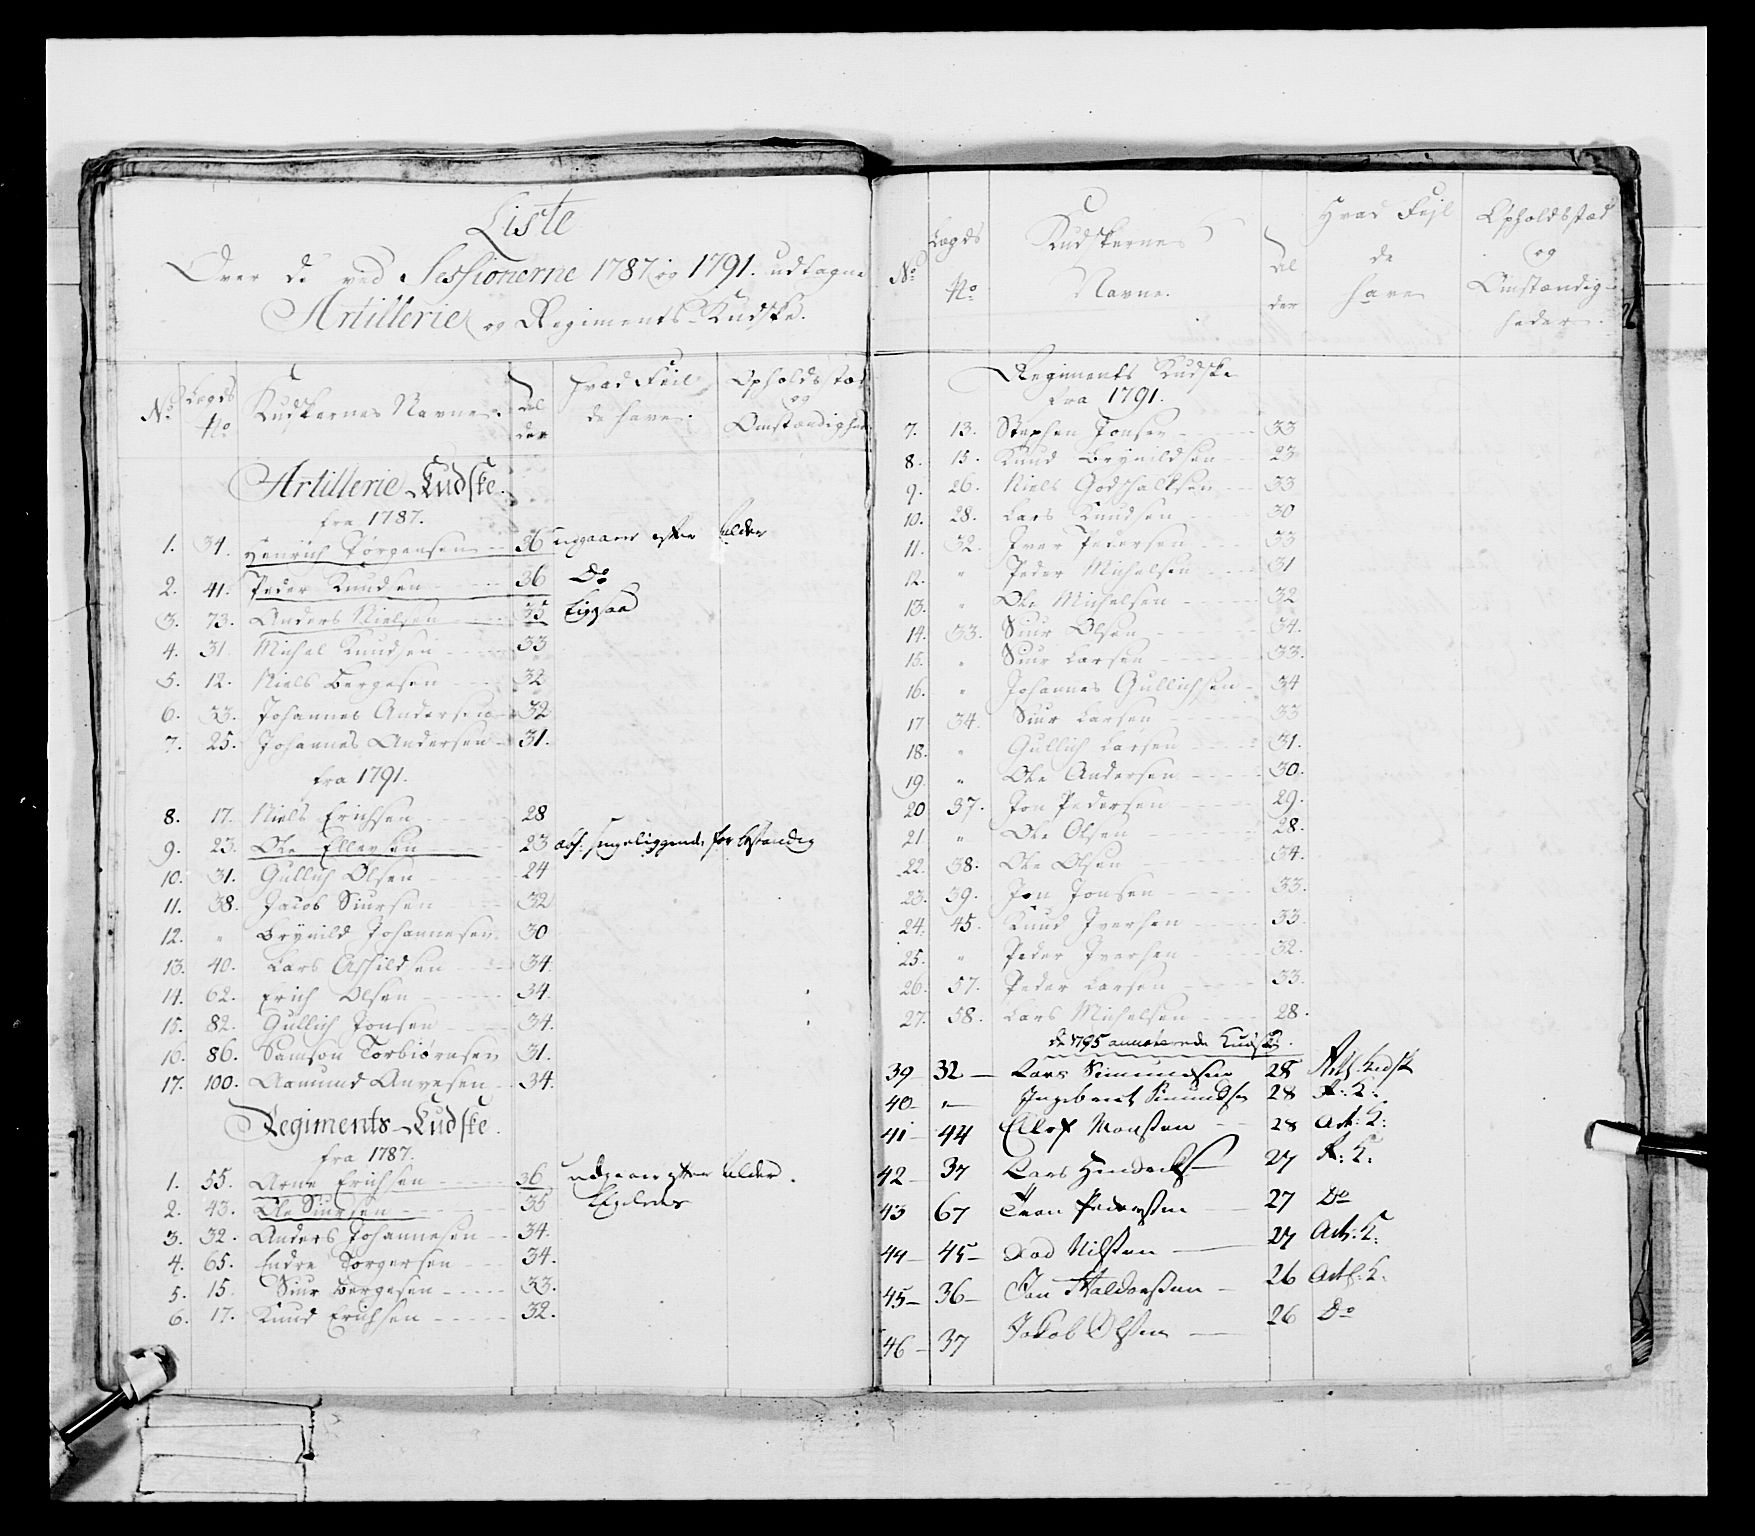 Liste
Over de ved Sessionerne 1787 og 1791 udtagne
Artillerie og Regiments-Kudske.
No Lægds No Kudskernes Navne. Alder Hvad Feil de have. Opholdsstæd og Omstændighed
Artillerie-Kudske.
fra 1787.
1. 34. Henrich Jørgensen 36 udgaaer efter Alder
2. 41. Peder Knudsen 36 Do
3. 73. Anders Nielsen 35 Ligesaa
4. 31. Michel Knudsen 33
5. 12. Niels Bergesen 32
6. 33. Johannes Andersen 32
7. 25. Johannes Andersen 31.
fra 1791.
8. 17. Niels Erichsen 28
9. 23. Ole Ellevsen 23 sengeliggende for bestandig
10. 31. Gullich Olsen 24
11. 38. Jacob Siursen 32
12. " Brynild Johannesen 30
13. 40. Lars Askildsen 34.
14. 62. Erich Olsen 34.
15. 82. Gullich Jonsen 34.
16. 86. Samson Torbiørnsen 31.
17. 100. Aamund Anvesen 34.
Regiments-Kudske.
fra 1787.
1. 55. Arne Erichsen 36 udgaaer efter Alder.
2. 43. Ole Siursen 35 Ligeledes
3. 32. Anders Johannesen 34.
4. 65. Endre Torgersen 34.
5. 15. Siur Bergesen 33.
6. 17. Knud Erichsen 32.
No Lægds No Kudskernes Navne. Alder Hvad Fejl de have Opholdsstæd og Omstændigheder.
Regiments Kudske
fra 1791.
7. 13. Stephen Jonsen 33
8. 15. Knud Brynildsen 23
9. 26. Niels Godskalksen 33
10. 28. Lars Knudsen 30
11. 32. Iver Pedersen 33
12. " Peder Michelsen 31
13. " Ole Michelsen 32
14. 33. Siur Olsen 34.
15. " Siur Larsen 33.
16. " Johannes Gullichsen 34
17 34. Siur Larsen 33
18. " Gullich Larsen 31.
19. " Ole Andersen 30.
20 37. Jon Pedersen 29.
21 " Ole Olsen 28.
22. 38. Ole Olsen 34.
23. 39. Jon Jonsen 33.
24. 45. Knud Iversen 33.
25. " Peder Iversen 32.
26. 57. Peder Larsen 33.
27. 58. Lars Michelsen 28.
de 1795 annoterede Kudske.
39 32 Lars Simundsen 28 Artl. Kudsk
40 " Ingebrect Simundsn 28 R: K:
41 44 Ellef Monssen 28 Art: K:
42 37 Lars 27 R: K:
43 67 Pedersen 27 Do
44 45 Nilssen 27 Art: K:
45 36 Jon Haldorssen 26 Artl: K:
46 37 Jakob Olssen 26 Do